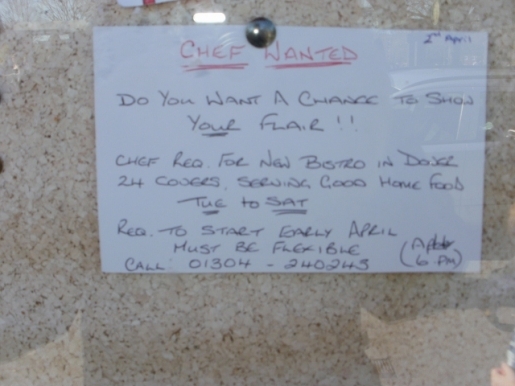 2nd April
CHEF WANTED
DO YOU WANT A CHANCE TO SHOW
YOUR FLAIR !!
CHEF REQ. FOR NEW BISTRO IN DOVER
24 COVERS, SERVING GOOD HOME FOOD
TUE to SAT
REQ. TO START EARLY APRIL
MUST BE FLEXIBLE
CALL 01304 - 240243
6 PM)